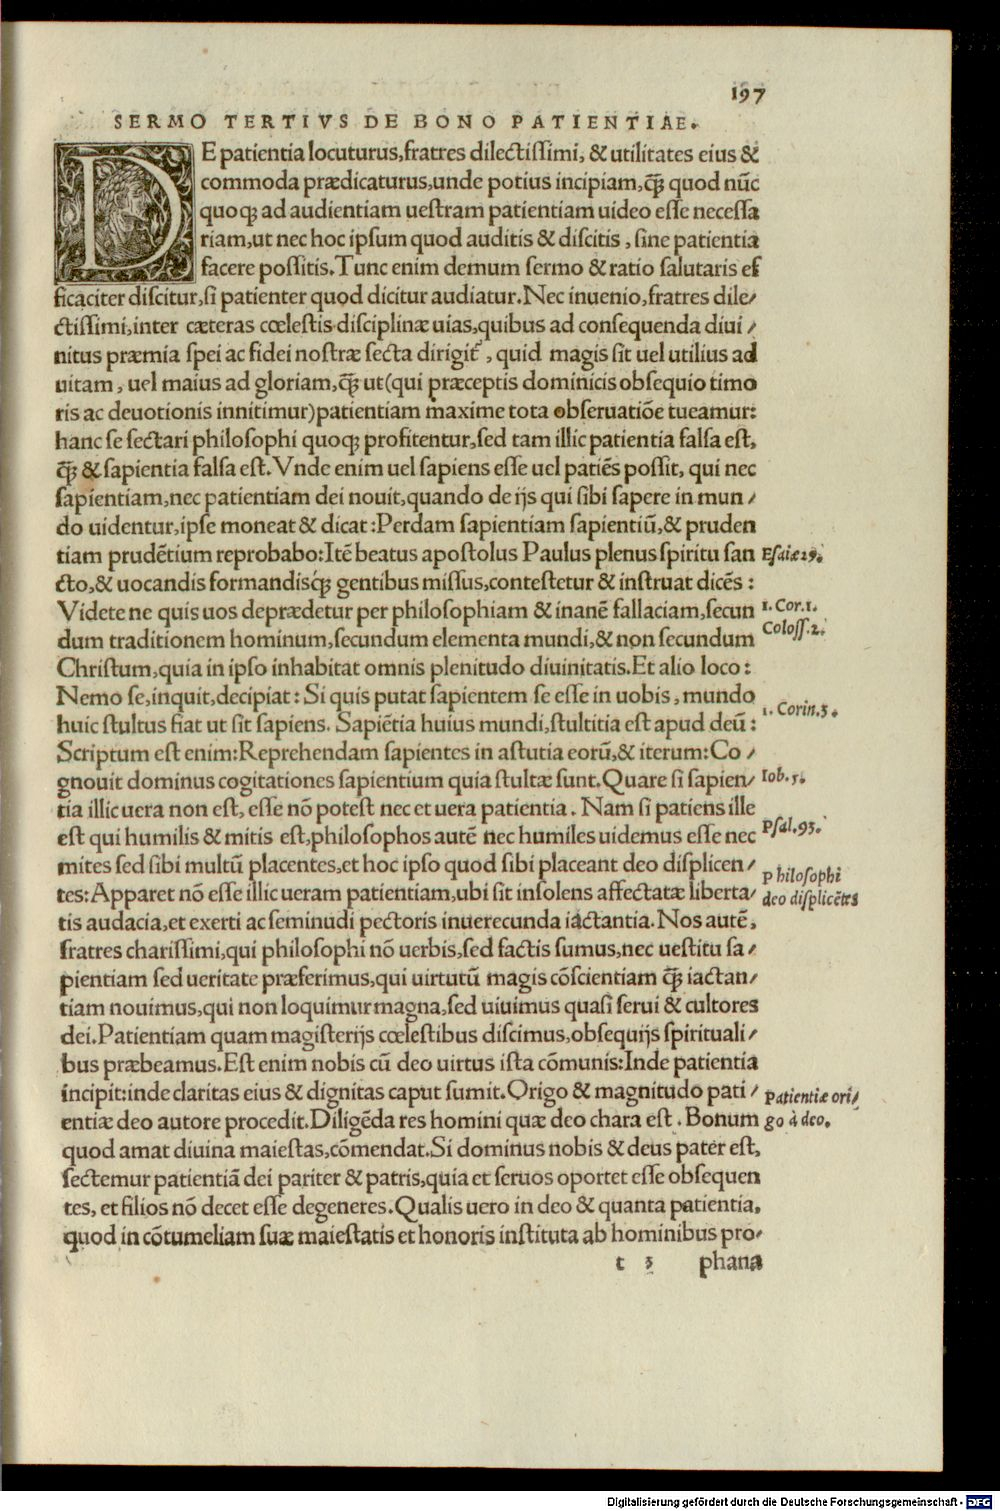 197
SERMO TERTIVS DE BONO PATIENTIAE.
DE patientia locuturus,fratres dilectissimi, & utilitates eius &
commoda prædicaturus,unde potius incipiam,q̃ꝫ quod nūc
quoqꝫ ad audientiam uestram patientiam uideo esse necessa
riam,ut nec hoc ipsum quod auditis & discitis , sine patientia
facere possitis.Tunc enim demum sermo & ratio salutaris ef
ficaciter discitur,si patienter quod dicitur audiatur.Nec inuenio,fratres dile/
ctissimi,inter cæteras cœlestis disciplinæ uias,quibus ad consequenda diui /
nitus præmia spei ac fidei nostræ secta dirigit᷑ , quid magis sit uel utilius ad
uitam , uel maius ad gloriam,q̃ꝫ ut(qui præceptis dominicis obsequio timo
ris ac deuotionis innitimur)patientiam maxime tota obseruatiōe tueamur:
hanc se sectari philosophi quoqꝫ profitentur,sed tam illic patientia falsa est,
q̃ꝫ & sapientia falsa est.Vnde enim uel sapiens esse uel patiēs possit, qui nec
sapientiam,nec patientiam dei nouit,quando de ijs qui sibi sapere in mun /
do uidentur,ipse moneat & dicat :Perdam sapientiam sapientiū,& pruden
tiam prudētium reprobabo:Itē beatus apostolus Paulus plenus spiritu san
Esaiæ 29.
cto,& uocandis formandisq̃ꝫ gentibus missus,contestetur & instruat dicēs :
Videte ne quis uos deprædetur per philosophiam & inanē fallaciam,secun
1. Cor.1.
dum traditionem hominum,secundum elementa mundi,& non secundum
Coloss.2.
Christum,quia in ipso inhabitat omnis plenitudo diuinitatis.Et alio loco :
Nemo se,inquit,decipiat : Si quis putat sapientem se esse in uobis , mundo
huic stultus fiat ut sit sapiens. Sapiētia huius mundi,stultitia est apud deū :
1. Corin.3.
Scriptum est enim:Reprehendam sapientes in astutia eorū,& iterum:Co /
gnouit dominus cogitationes sapientium quia stultæ sunt.Quare si sapien/
Iob.5.
tia illic uera non est, esse nō potest nec et uera patientia . Nam si patiens ille
est qui humilis & mitis est,philosophos autē nec humiles uidemus esse nec
Psal.93.
mites sed sibi multū placentes,et hoc ipso quod sibi placeant deo displicen /
philosophi
tes:Apparet nō esse illic ueram patientiam,ubi sit insolens affectatæ liberta/
deo displicētes
tis audacia,et exerti ac seminudi pectoris inuerecunda iactantia. Nos autē,
fratres charissimi,qui philosophi nō uerbis,sed factis sumus,nec uestitu sa /
pientiam sed ueritate præferimus,qui uirtutū magis cōscientiam q̃ꝫ iactan/
tiam nouimus,qui non loquimur magna,sed uiuimus quasi serui & cultores
dei.Patientiam quam magisterijs cœlestibus discimus,obsequijs spirituali /
bus præbeamus.Est enim nobis cū deo uirtus ista cōmunis:Inde patientia
incipit:inde claritas eius & dignitas caput sumit.Origo & magnitudo pati /
Patientiæ ori/
entiæ deo autore procedit.Diligēda res homini quæ deo chara est . Bonum
go à deo.
quod amat diuina maiestas,cōmendat.Si dominus nobis & deus pater est,
sectemur patientiā dei pariter & patris,quia et seruos oportet esse obsequen
tes, et filios nō decet esse degeneres.Qualis uero in deo & quanta patientia,
quod in cōtumeliam suæ maiestatis et honoris instituta ab hominibus pro/
t 3 phana
Digitalisierung gefördert durch die Deutsche Forschungsgemeinschaft - DFG